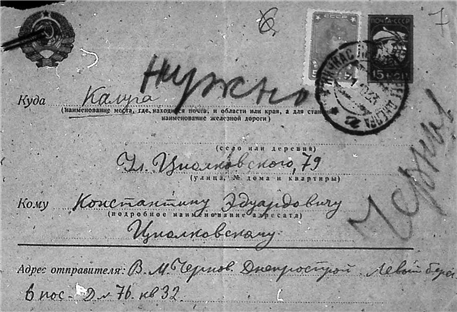 6
7
нужно
Куда Калуга
(наименование места, где находится почта, и области или края, а для стан
наименование железной дороги)
(село или деревня)
Ул. Циолковского, 79
(улица, № дома и квартиры)
Кому Константину Эдуардовичу
(подробное наименование адресата)
Циолковскому.
Чернов
Адрес отправителя: В. М. Чернов. Днепрострой. Левый берег
6 пос. Д. № 76. кв 32.